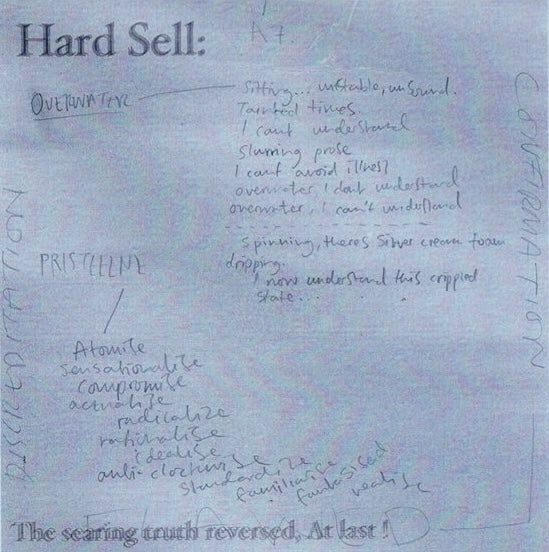 Hard Sell:
A7.
OVERWATER
Sitting... unstable, unsound.
Tainted times.
I can't understand
Slurring prose
I can't avoid illness
overwater, I don't understand
overwater, I can't understand
Spinning, theres Silver cream foam
dripping.
I now understand this crippled
State...
CONFIRMATION
PRISTEENE
Atomise
sensationalise
compromise
actualise
radicalize
rationalise
idealise
standardize
familiarise
fantasised
realise
The searing truth reversed, At last !